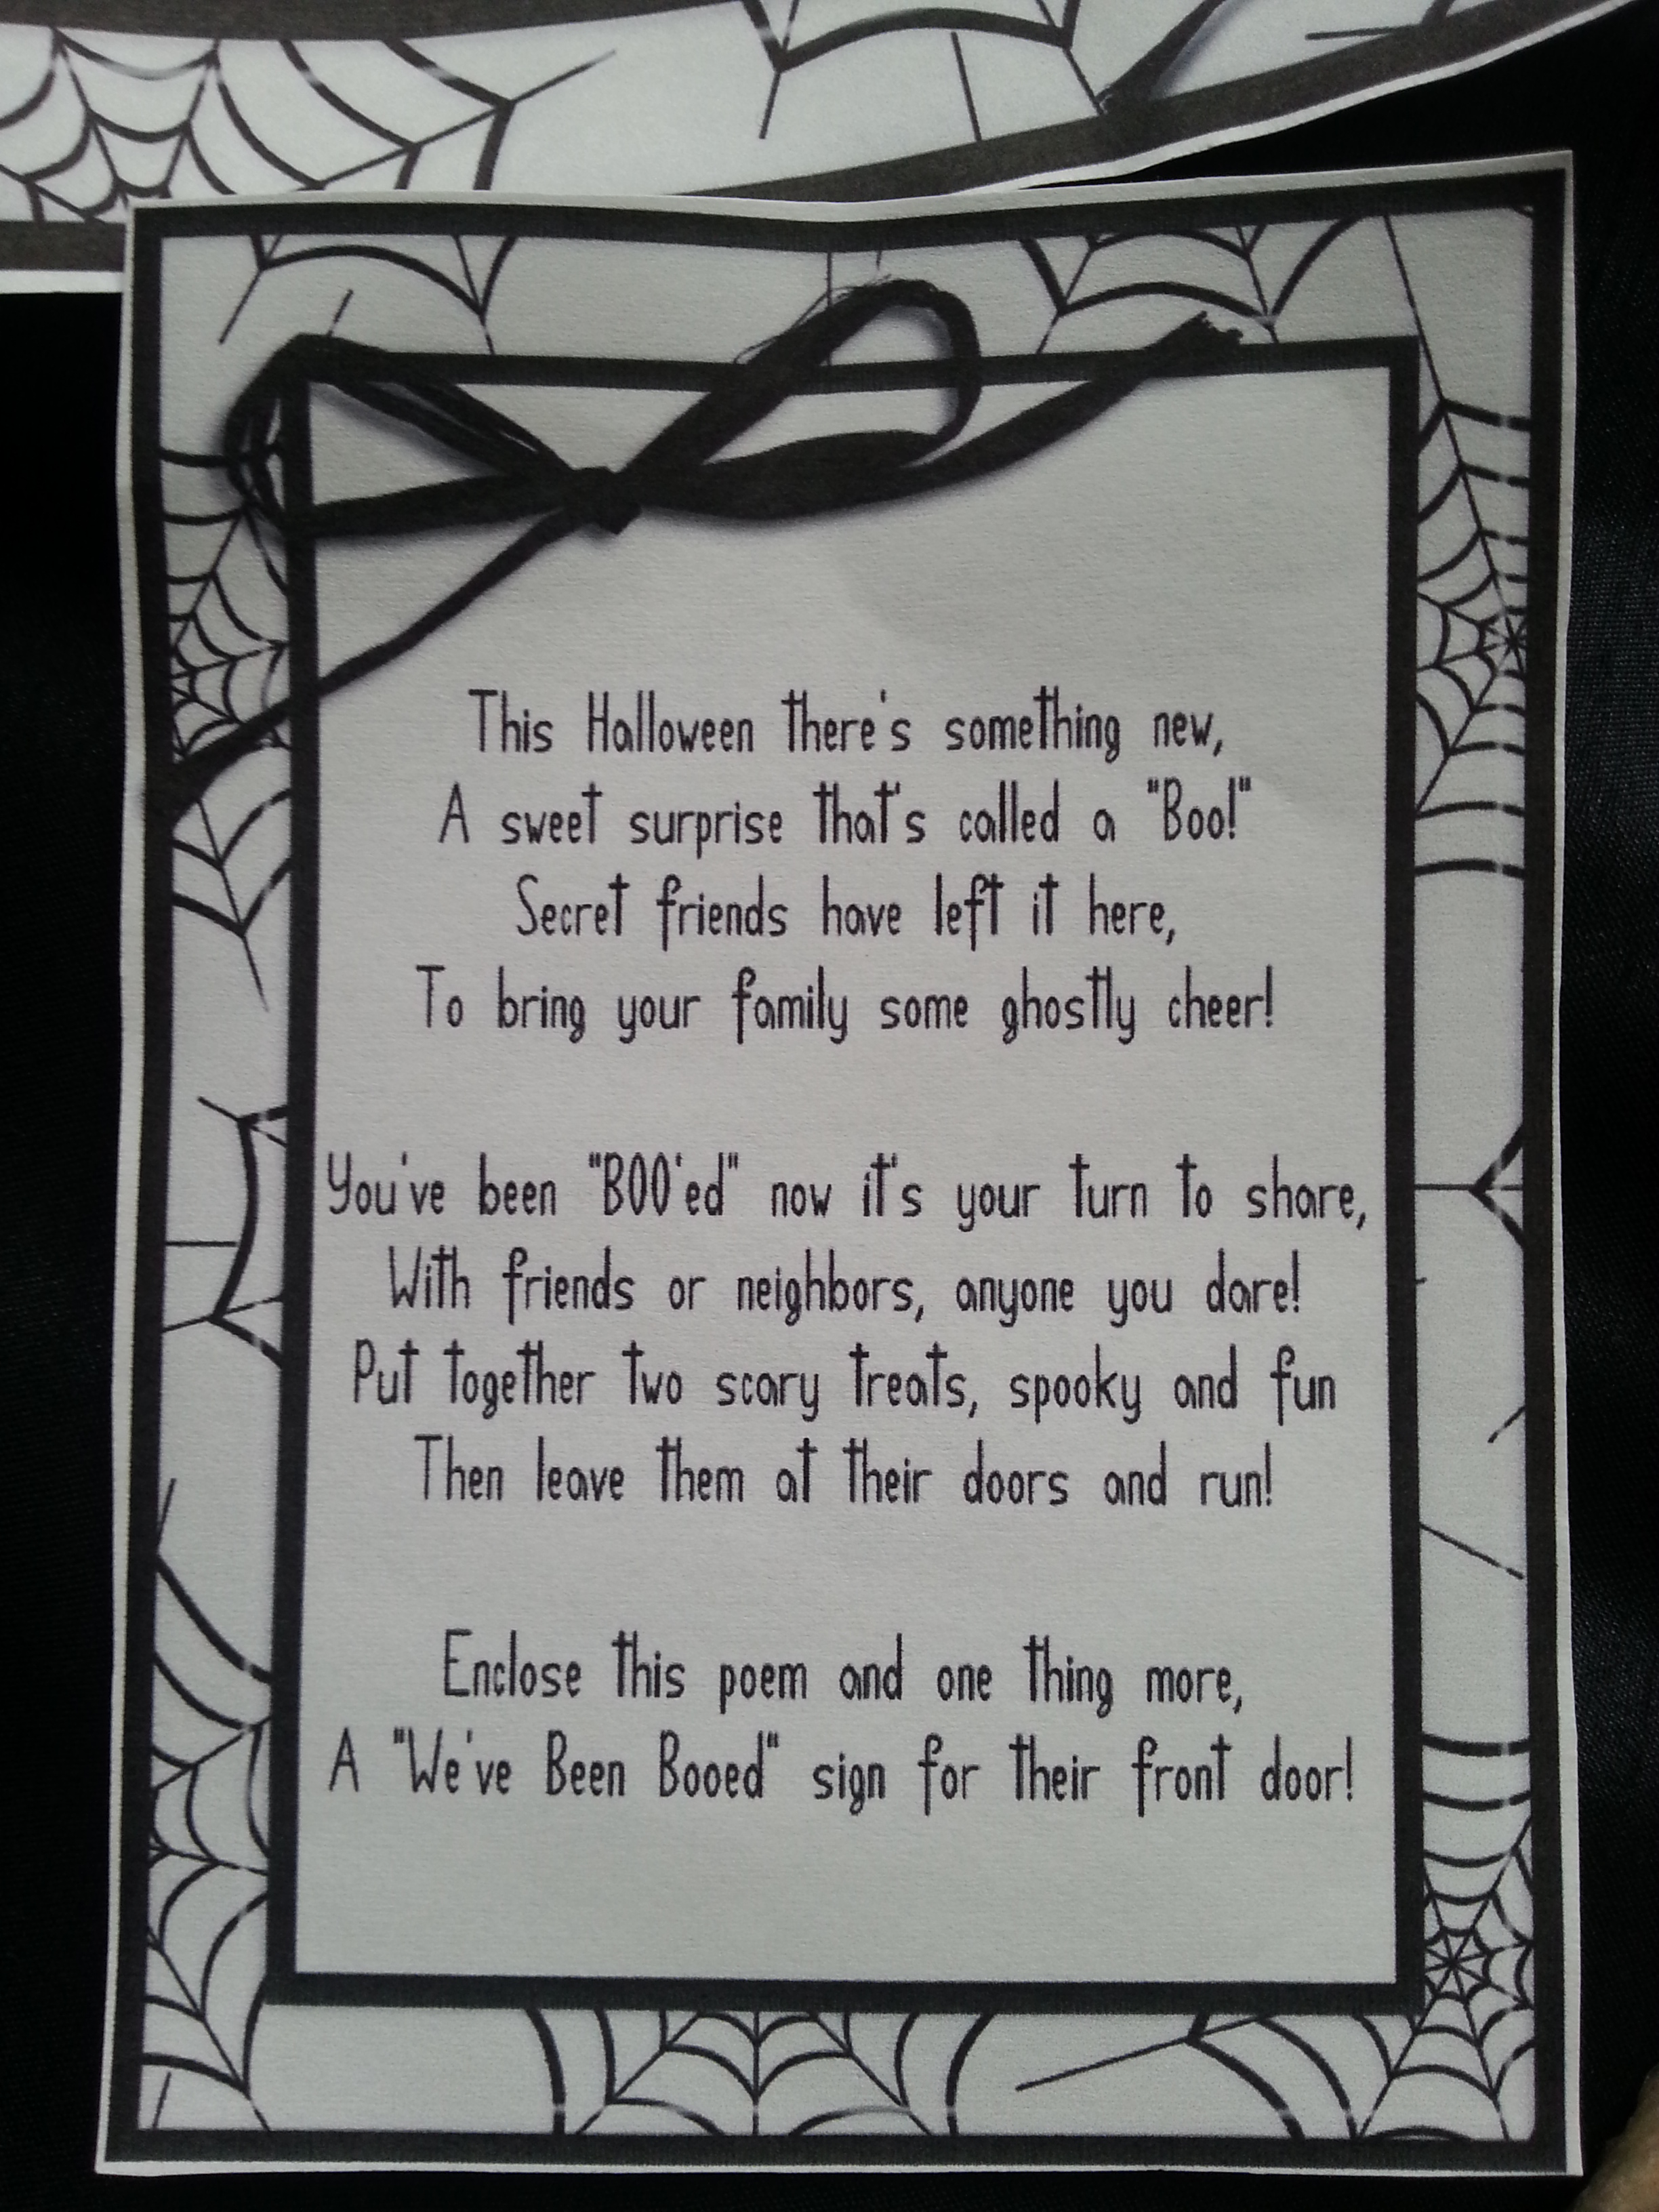 This Halloween there's something new,
A sweet surprise that's called a "Boo!"
Secret friends have left it here,
To bring your family some ghostly cheer!
You've been "BOO'ed" now it's your turn to share,
With friends or neighbors, anyone you dare!
Put together two scary treats, spooky and fun
Then leave them at their doors and run!
Enclose this poem and one thing more,
A "We've Been Booed" sign for their front door!